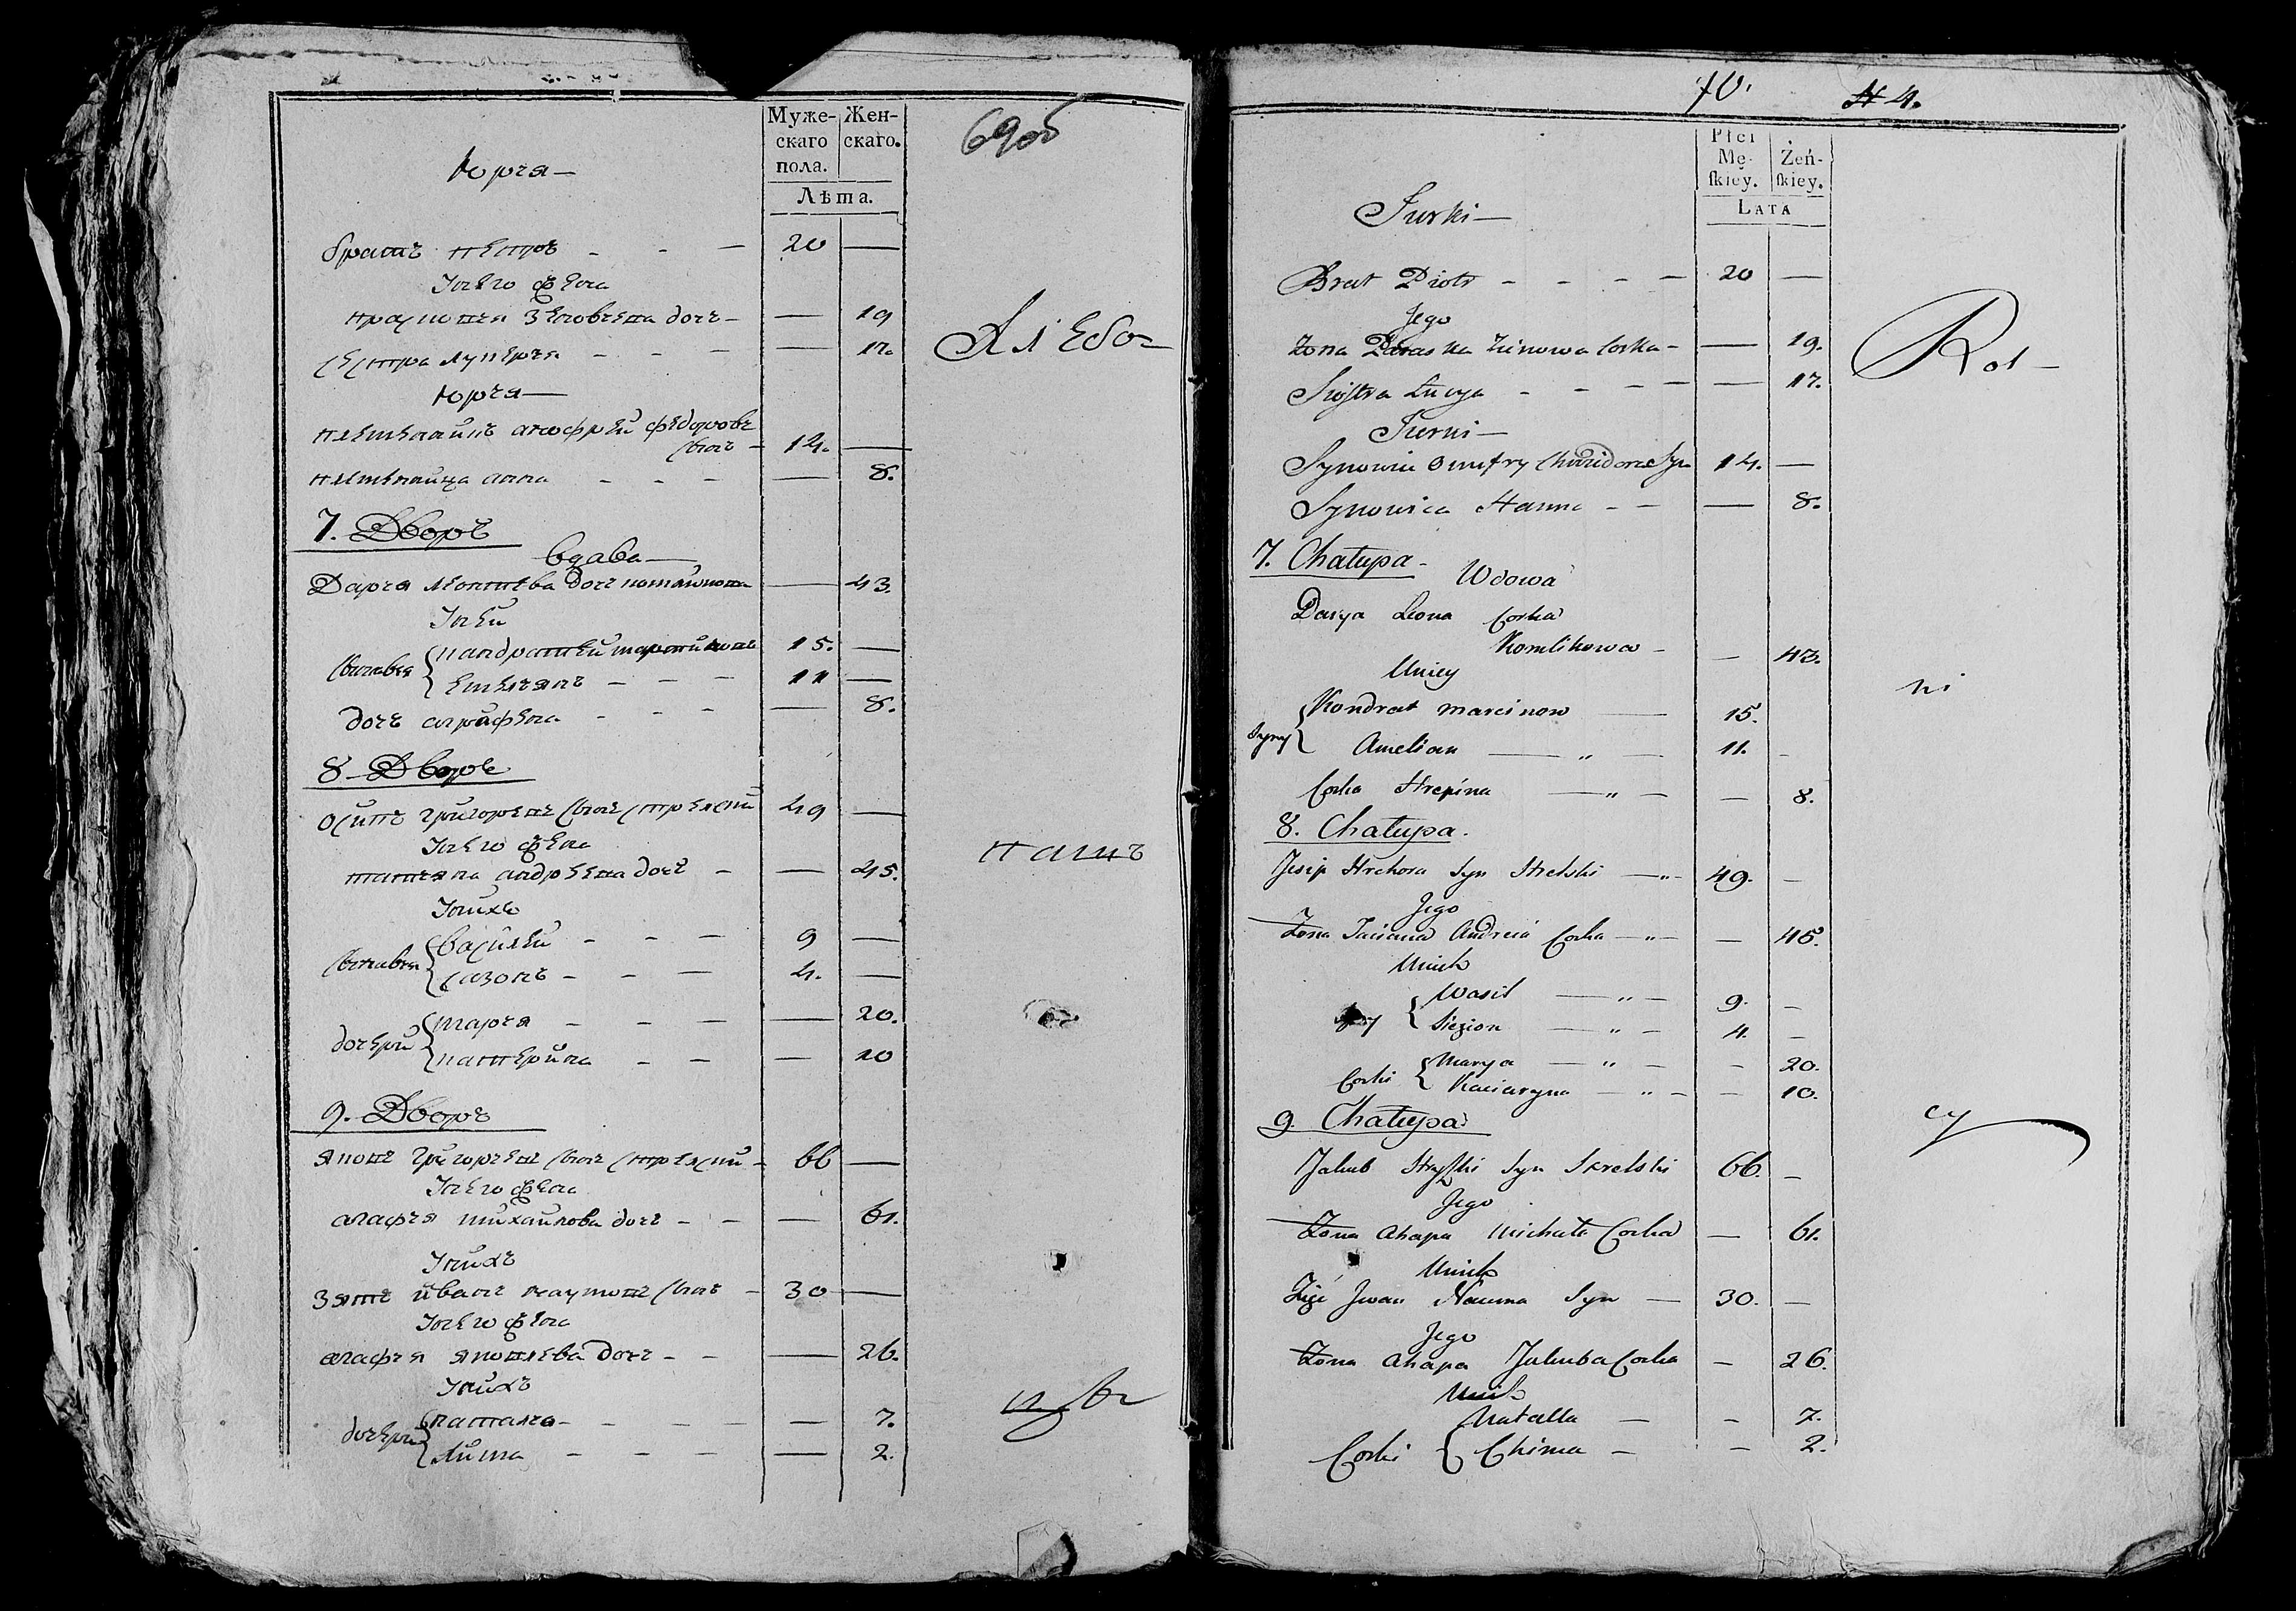 Муже-
скаго
пола.
Жен-
скаго.
Лѣта.
69об
Юрья —
братъ петръ - - — 20 —
Унего жена
— 19
сестра лукерья - - — — 17.
Юрья —
племенникъ анофрей федоровъ
сынъ — 14. —
племенница анна - - — — 8.
Хлебо=
7. Дворъ
вдава —
Дарья леонтьева дочь — 43.
Унеи
сыновья { кандратей мартиновъ 15. —
емельянъ - - — 11 —
дочь аграфена - - — — 8.
8 Дворъ
осипъ григорьевъ сынъ стрелский 49 —
Унего жена
татьяна андреева дочь - — 45.
Унихъ
сыновья { василей - - — 9 —
сазонъ - - — 4. —
дочери { марья - - — — 20.
катерина - — — 10
пашъ
9. Дворъ
яковъ григорьевъ сынъ стрелский - 66 —
Унего жена
агафья михайлова дочь - — — 61.
Унихъ
зять иванъ наумовъ сынъ - 30 —
Унего жена
агафья яковлева дочь - — — 26.
Унихъ
дочери { наталья - - — — — 7.
- - — — 2.
70.
N 4.
Płci
Mę-
ſkiey.
Żeń-
ſkiey.
Lata
Jurki —
Brat Piotr - - - — 20 —
Jego
Żona Paraska Zinowa Corka - — 19.
Siostra Łucya - - - — — 17.
Jurki —
Synowiec Onufry Chwiedora Syn 14. —
Synowica Hanna - — — 8.
7. Chałupa -
Wdowa
Darya Leona Corka
- — 43.
Uniey
Syny { Kondrat Marcinow — 15.
Amelian — „ — 11. -
Corka Hrepina — „ — — 8.
8. Chałupa.
Jesip Hrehora Syn Strelski — „ - 49. —
Jego
Żona Taciana Andreia Corka — „ - — 45.
Unich
{ Wasil — „ — 9. -
— „ — 4. -
Corki { Marya — „ — - 20.
Kaciaryna — „ — - 10.
9. Chałupa
Jakub Syn Strelski 66. -
Jego
Żona Ahapa Michała Corka — 61.
Unich
Zięć Jwan Nauma Syn — 30. -
Jego
Żona Ahapa Jakuba Corka — 26.
Unich
Corki { Natalla — - 7.
Chima — - 2.